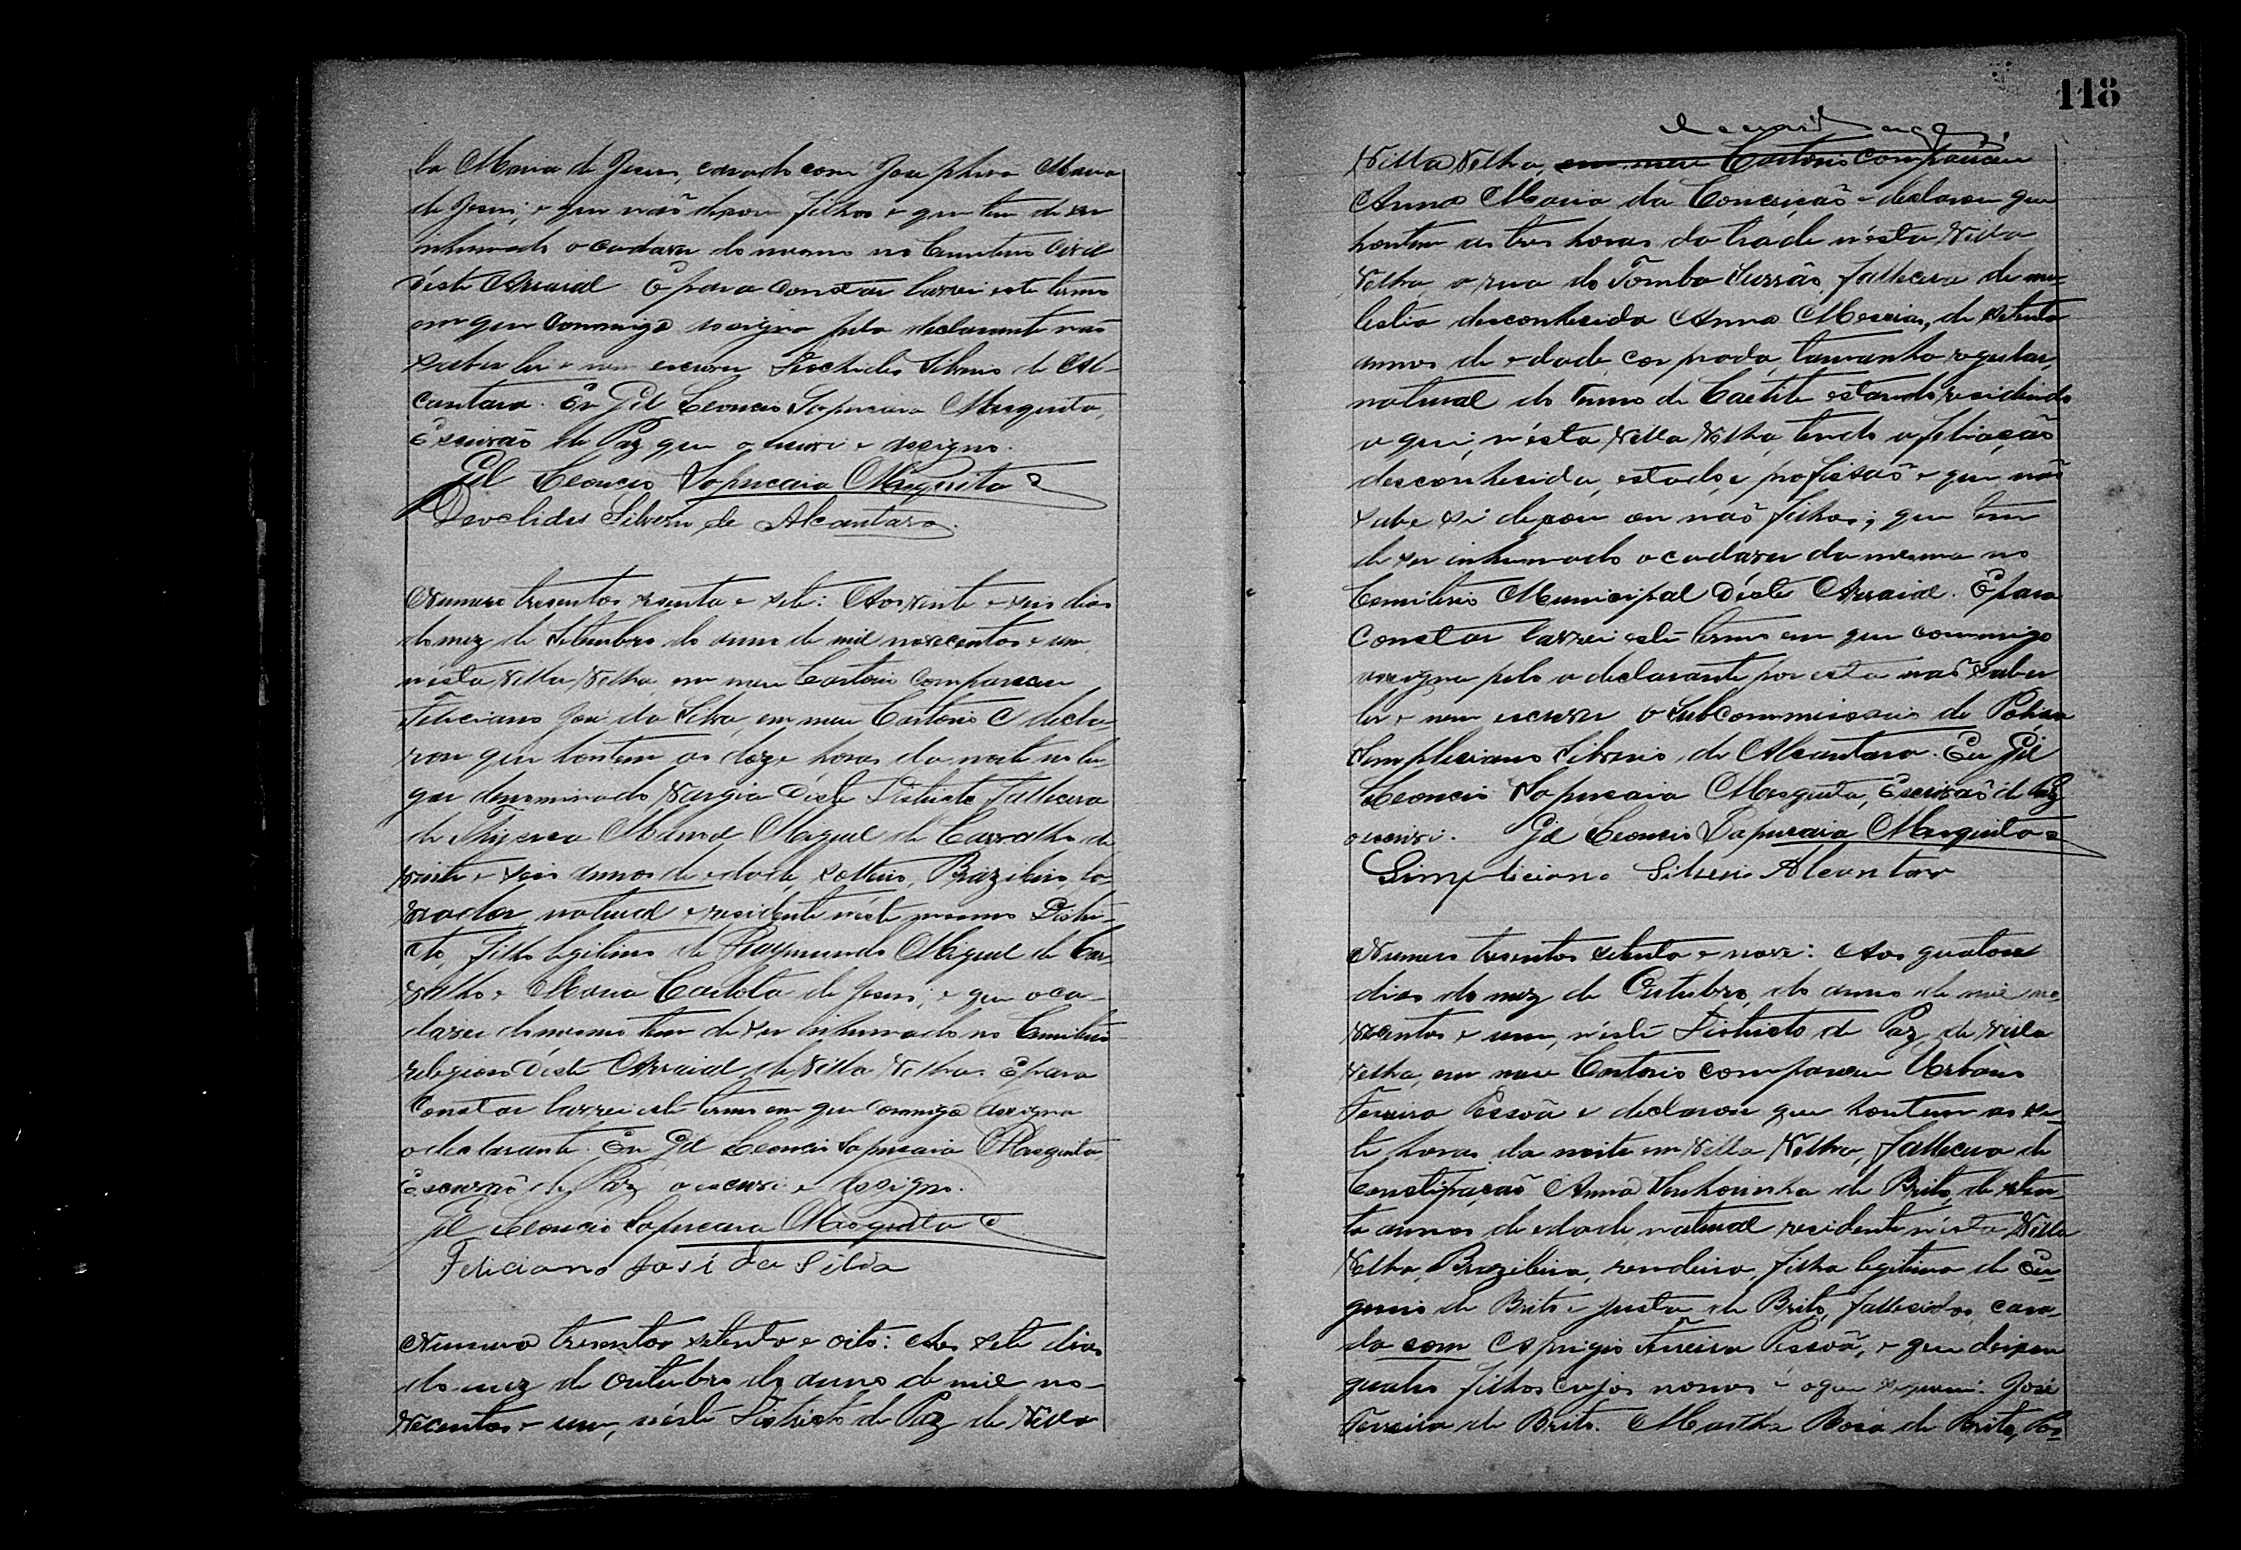 la Maria de Jesus, casado com Josephina Maria
de Jesus; e que não deixou filhos e que tem de ser
inhumado o cadaver do mesmo no Cemiterio Civil
déste Arraial E para Constar lavrei este termo
em que Commigo assigna pelo declarante não
saber ler e nem escrever Deoclides Silverio de Al-
cantara. Eu Gil Leoncio Sapucaia Mesquita,
Escrivão de Paz que o escrevi e assigno.
Gil Leoncio Sapucaia Mesquita
Deoclides Silverio de Alcantara.
Numero tresentos setenta e sete: Aos vinte e seis dias
do mez de Setembro do anno de mil novecentos e um,
nésta Villa Velha, em meu Cartorio Compareceu
Feliciano José da Silva, em meu Cartorio e decla-
rou que hontem as doze horas da noite no lu-
gar denominado Vargia déste Districto fallecera
de Manoel Miguel de Carvalho de
vinte e seis annos de edade, solteiro, Brazileiro, la-
vrador, natural e residente néste mesmo Distri-
cto, filho legitimo de Raymundo Miguel de Car-
valho e Maria Carlota de Jesus; e que o ca-
daver do mesmo tem de ser inhumado no Cemiterio
religioso déste Arraial de Villa Velha. E para
Constar lavrei este termo em que Commigo assigna
o declarante. Eu Gil Leoncio Sapucaia Mesquita,
Escrivão de Paz o escrevi e assigno.
Gil Leoncio Sapucaia Mesquita
Feliciano José da Silva
Numero tresentos setenta e oito: Aos sete dias
do mez de Outubro do anno de mil no-
vecentos e um, néste Districto de Paz de Villa
118
Villa Velha, em meu Cartorio Compareceu
Anna Maria da Conceição e declarou que
hontem as tres horas da tarde n'ésta Villa
Velha, a rua do Tomba Surrão, fallecera de mo-
lestia desconhecida Anna Messias, de setenta
annos de edade, cor parda, tamanho regular,
natural do termo de Caetité estando residindo
aqui, n'ésta Villa Velha, tendo a filiação
desconhecida, estado, e profissão e que não
sabe si deixou ou não filhos; que tem
de ser inhumado o cadaver da mesma no
Cemiterio Municipal déste Arraial. E para
Constar lavrei este termo em que commigo
assigna pelo a declarante por esta não saber
ler e nem escrever o Subcommissario de Policia
Simpliciano Silverio de Alcantara. Eu Gil
Leoncio Sapucaia Mesquita, Escrivão de Paz
o escrevi. Gil Leoncio Sapucaia Mesquita
Simpliciano Silverio Alcantara
Numero tresentos setenta e nove: Aos quatorze
dias do mez de Outubro, do anno de mil no-
vecentos e um, néste Districto de Paz de Villa
Velha, em meu Cartorio compareceu Urbano
Ferreira Pessoã e declarou que hontem as se-
te horas da noite em Villa Velha, fallecera de
Constipação Anna Senhorinha de Brito, de seten-
ta annos de edade, natural residente n'ésta Villa
Velha, Brazileira, rendeira, filha legitima de Eu-
genio de Brito e Justa de Brito, fallecidos, casa-
da com Aprigio Ferreira Pessoã, e que deixou
quatro filhos cujos nomes é o que seguem: José
Ferreira de Brito. Martha Rosa de Brito, Ros-